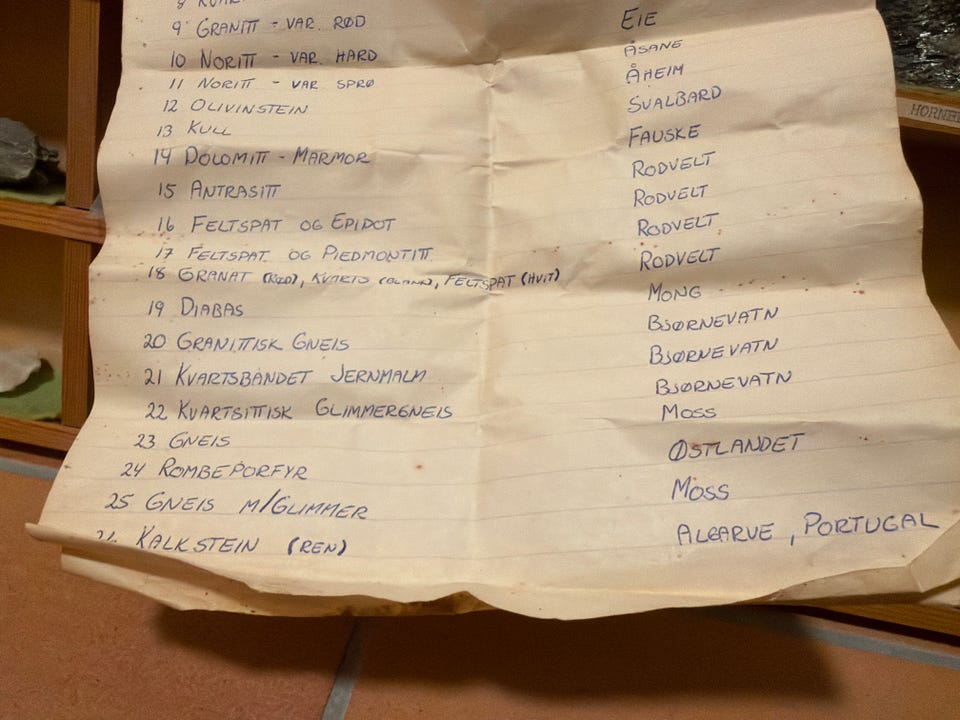 9 GRANITT - VAR. RØD
10 NORITT - VAR. HARD EIE
11 NORITT - VAR SPRØ ÅSANE
12 OLIVINSTEIN ÅHEIM
13 KULL SVALBARD
14 DOLOMITT - MARMOR FAUSKE
15 ANTRASITT RODVELT
16 FELTSPAT OG EPIDOT RODVELT
17 FELTSPAT OG PIEDMONTITT RODVELT
18 GRANAT (RØD), KVARTS (BLANK), FELTSPAT (HVIT) RODVELT
19 DIABAS MONG
20 GRANITTISK GNEIS BJØRNEVATN
21 KVARTSBÅNDET JERNMALM BJØRNEVATN
22 KVARTSITTISK GLIMMERGNEIS BJØRNEVATN
23 GNEIS MOSS
24 ROMBEPORFYR ØSTLANDET
25 GNEIS M/GLIMMER MOSS
KALKSTEIN (REN) ALGARVE, PORTUGAL